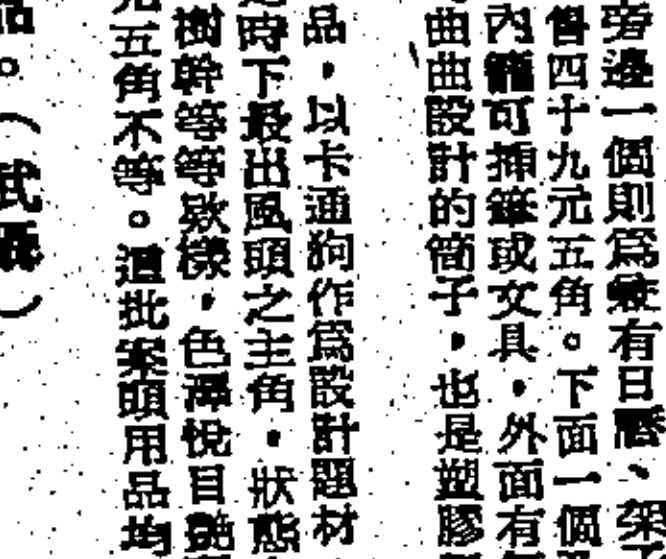 旁邊一個則爲設有日曆、架子
售四十九元五角。下面一個
內籠可插筆或文具,外面有
曲曲設計的筒子,也是塑膠
品,以卡通狗作爲設計題材,
時下最出風頭之主角,狀態
樹幹等等欵樣,色澤悅目艷
元五角不等。這批案頭用品均
品。(武